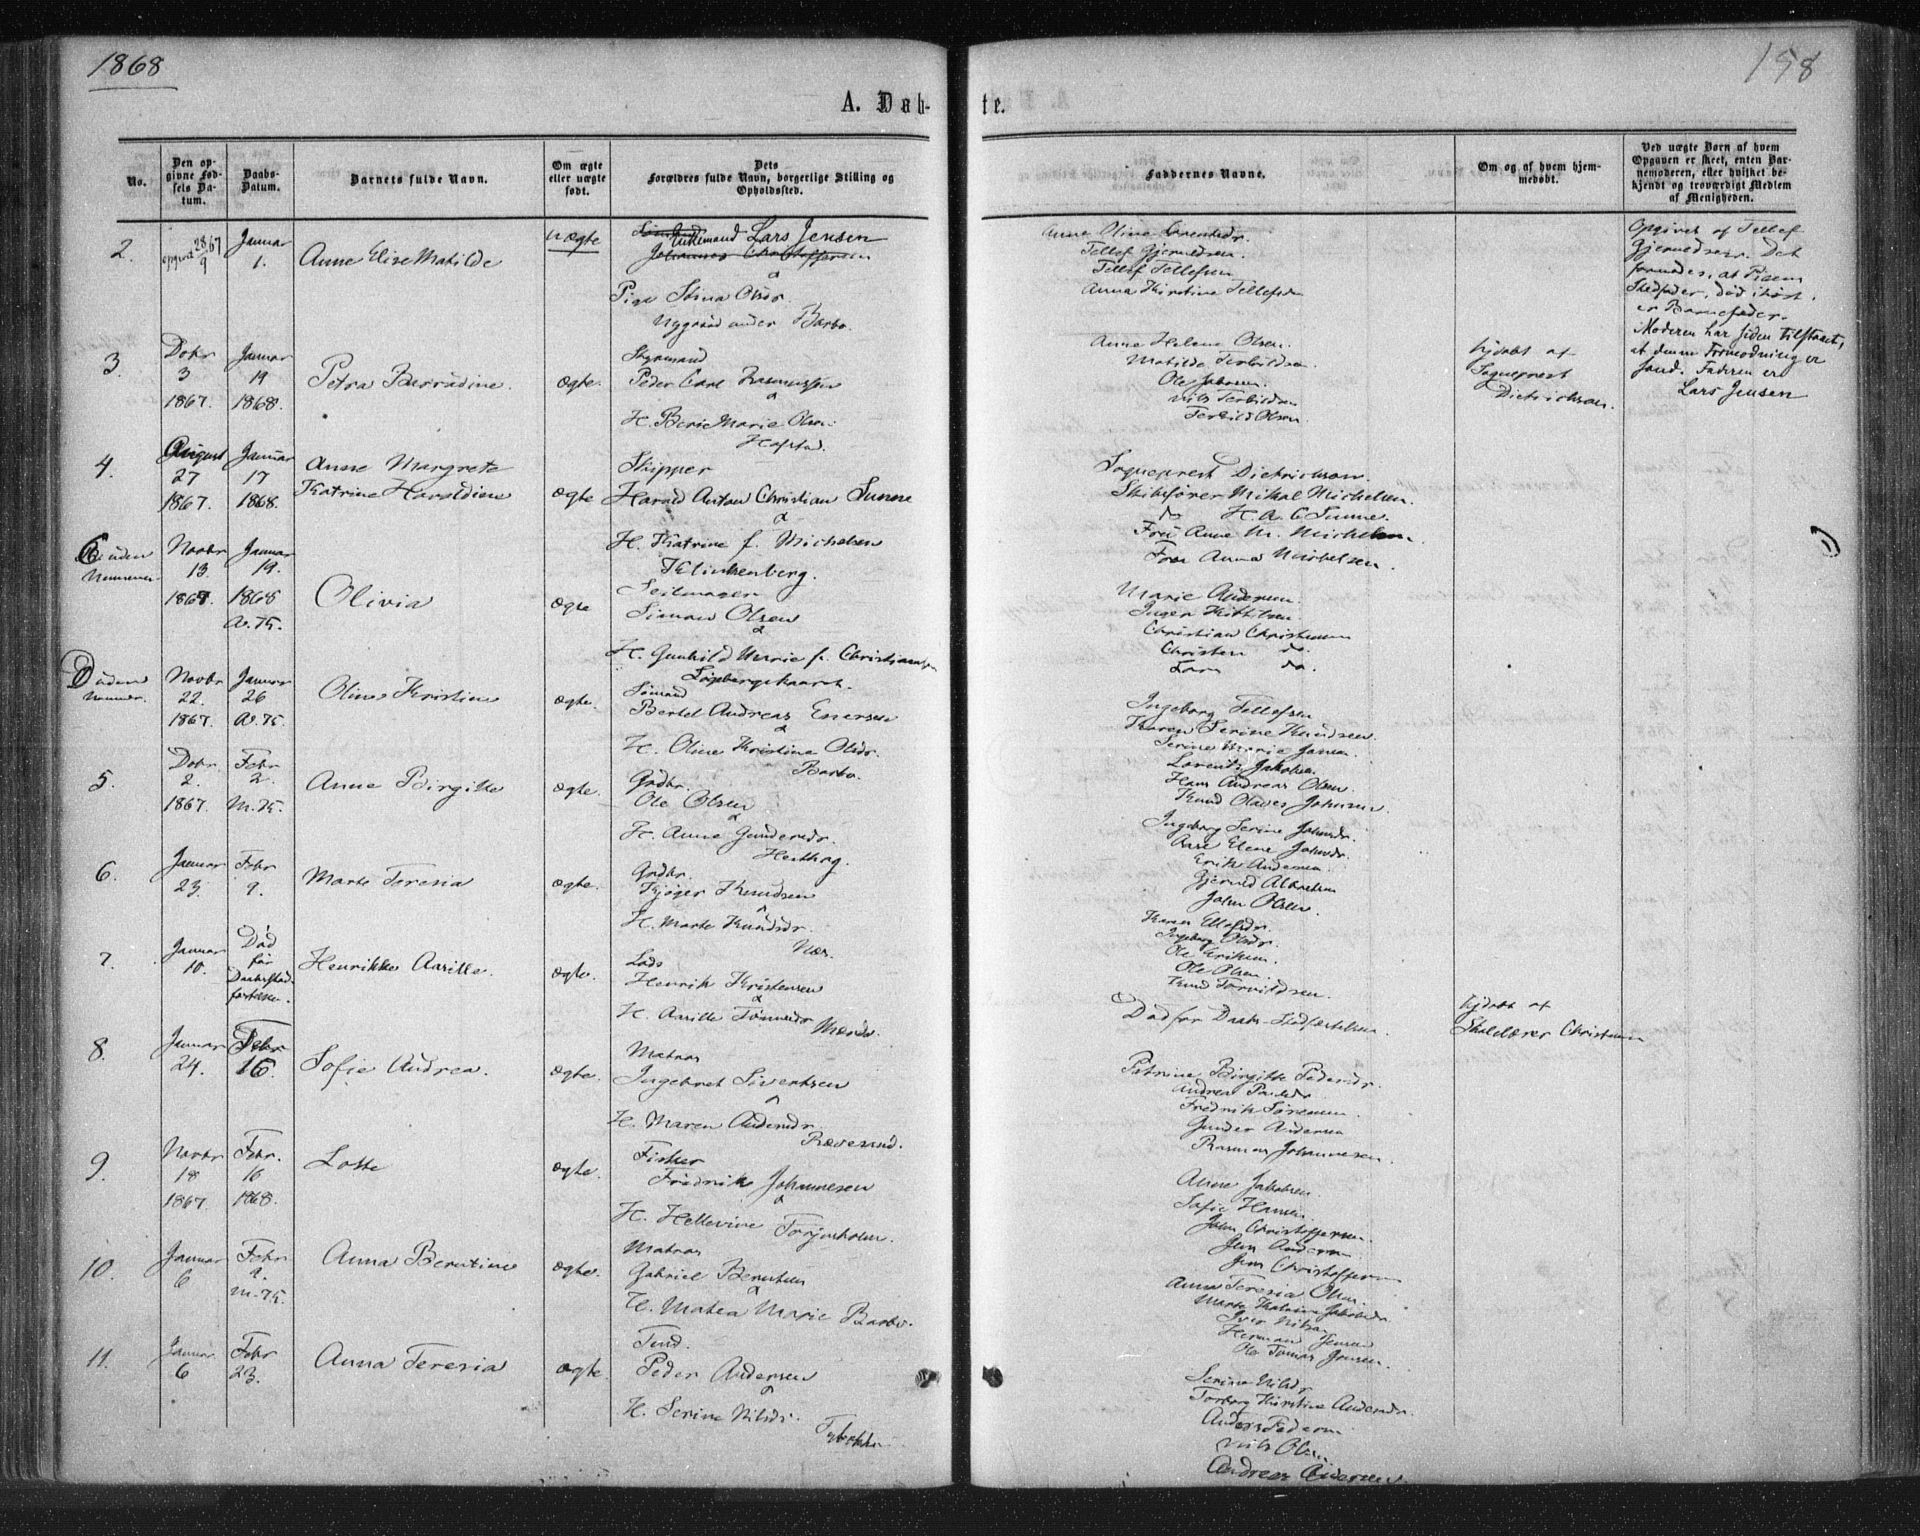 1868
158
A. Døb-
te.
No.
Den op-
givne Fød-
sels Da-
tum.
Daabs-
Datum.
Barnets fulde Navn.
Om ægte
eller uægte
født.
Dets
Forældres fulde Navn, borgerlige Stilling og
Opholdssted.
Faddernes Navne.
Om og af hvem hjem-
medøbt.
Ved uægte Børn af hvem
Opgaven er skeet, enten Bar-
nemoderen, eller hvilket be-
kjendt og troværdigt Medlem
af Menigheden.
2.
28/9 67
Januar
1.
Anne Elise Matilde
uægte
Enkemand Lars Jensen
Johannes Christoffersen
&
Pige Stina Olsdr.
Nygaard under Barbo.
Anna Oline
Tellef Gjerulдsen.
Tellef Tellefsen
Anna Kirstine Tellefsen
Opgivet af Tellef
Gjeruldsen. Det
formodes, at Pigens
Stedfader, død i høst,
er Barnefader.
Moderen har siden tilstaaet,
at denne Formodning er
sand. Faderen er
Lars Jensen
3
Debr
3
1867.
Januar
19
1868.
Petra Barradine.
ægte.
Styrmand
Peder Carl Rasmussen
&
H. Berte Marie Olsen
Hafstad.
Anne Helene Olsen.
Matilde Terkildsen
Ole Jakobsen.
Nils Terkildsen
Terkild Olsen.
hjdøbt af
Sogneprest
Dietrichson.
4.
August
27
1867.
Januar
17
1868.
Anne Margrete
Katrine Haraldine
ægte
Skipper
Harald Anton Christian Sunne
&
H. Katrine f. Michelsen
Klinkenberg.
Sogneprest Dietrichson.
Skibsfører Mikal Michelsen.
do H. A. C Sunne.
Frú Anne M. Michelsen.
Frøken Anna Michelsen.
C uden
Nummer
Novbr
13
1867.
Januar
19.
1868
A. K.
Olivia
ægte
Seilmager
Simon Olsen
&
H. Gunhild Marie f. Christiansen
Marie Andersen.
Inger Kittelsen
Christian Christensen
Christen do.
Lars do.
D uden
nummer.
Novbr
22.
1867.
Januar
26
A. K.
Oline Kristine
ægte.
Sømand
Bertel Andreas Enersen
&
H. Oline Kristine Olsdr.
Barbo.
Ingeborg Tellefsen
Karen Serine Knudsen
Serine Marie Jansen.
Lorents Jakobsen.
Hans Andreas Olsen.
Knud Olaves Johnsen.
5.
Debr.
2.
1867.
Febr
2.
M. K.
Anne Birgitte
ægte.
Grdbr.
Ole Olsen
&
H. Anne Gundersdr.
Ingeborg Serine Johnsdr.
Aase Elene Johnsdr.
Erik Andersen
Gjeruld Albretsen
John Olsen.
6.
Januar
23.
Febr
9.
Marte Teresia
ægte.
Grdbr.
Kjøger Knudsen
&
H. Marte Knudsdr.
Nær.
Karen Ellefsdr.
Ingeborg Olsdr.
Ole Eriksen.
Ole Olsen.
Knud Torvildsen.
7.
Januar
10.
Død
før
Daabsstad-
fæstelsen.
Henrikke Aasille.
ægte.
Lods
Henrik Kristensen
&
H. Aasille Tønnesdr
Mærdø.
Død før Daabs-Stadfæstelsen.
hjdøbt af
Skolelærer Christensen
8.
Januar
24.
Febr
16
Sofie Andrea.
ægte.
Matros
Ingebret Sivertsen
&
H. Maren Andersdr
Revesand.
Petrine Birgitte Pedersdr.
Andrea Pedersdr
Fredrik Sørensen.
Gunder Andersen
Rasmus Johannesen.
9.
Novbr
18
1867.
Febr.
16
1868.
Lotte
ægte.
Fisker
Fredrik Johannesen
&
H. Hellevine
Torjusholm.
Anne Jakobsen.
Sofie Hansen.
John Christoffersen.
Jens Andersen
Jens Christoffersen
10.
Januar
6
Febr
9.
M. K.
Anna Berntine
ægte.
Matros
Gabriel Berntsen
&
H. Matea Marie Barbo.
Anna Teresia Olsen.
Marte Katrine Jakobsdr
Iver Nilsen
Herman Jensen
Ole Tomas Jensen.
11.
Januar
6
Febr
23.
Anna Teresia
ægte.
Tend.
Peder Andersen
&
H. Serine Nilsdr.
Serine Nilsdr
Torborg Kirstine Andersdr.
Anders Pedersen
Nils Olsen
Andreas Andersen